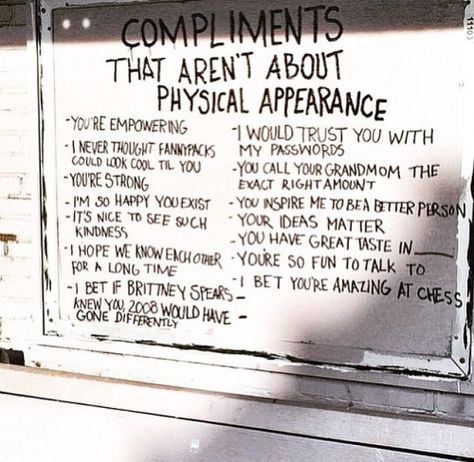 COMPLIMENTS
THAT AREN'T ABOUT
PHYSICAL APPEARANCE
-YOU'RE EMPOWERING
-I NEVER THOUGHT FANNYPACKS
COULD LOOK COOL TIL YOU
-YOU'RE STRONG
-I'M SO HAPPY YOU EXIST
-IT'S NICE TO SEE SUCH
KINDNESS
-I HOPE WE KNOW EACH OTHER
FOR A LONG TIME
-I BET IF BRITTNEY SPEARS
KNEW YOU, 2008 WOULD HAVE
GONE DIFFERENTLY
-I WOULD TRUST YOU WITH
MY PASSWORDS
-YOU CALL YOUR GRANDMOM THE
EXACT RIGHT AMOUNT
-YOU INSPIRE ME TO BE A BETTER PERSON
-YOUR IDEAS MATTER
-YOU HAVE GREAT TASTE IN ____
-YOU'RE SO FUN TO TALK TO
-I BET YOU'RE AMAZING AT CHESS
-
-